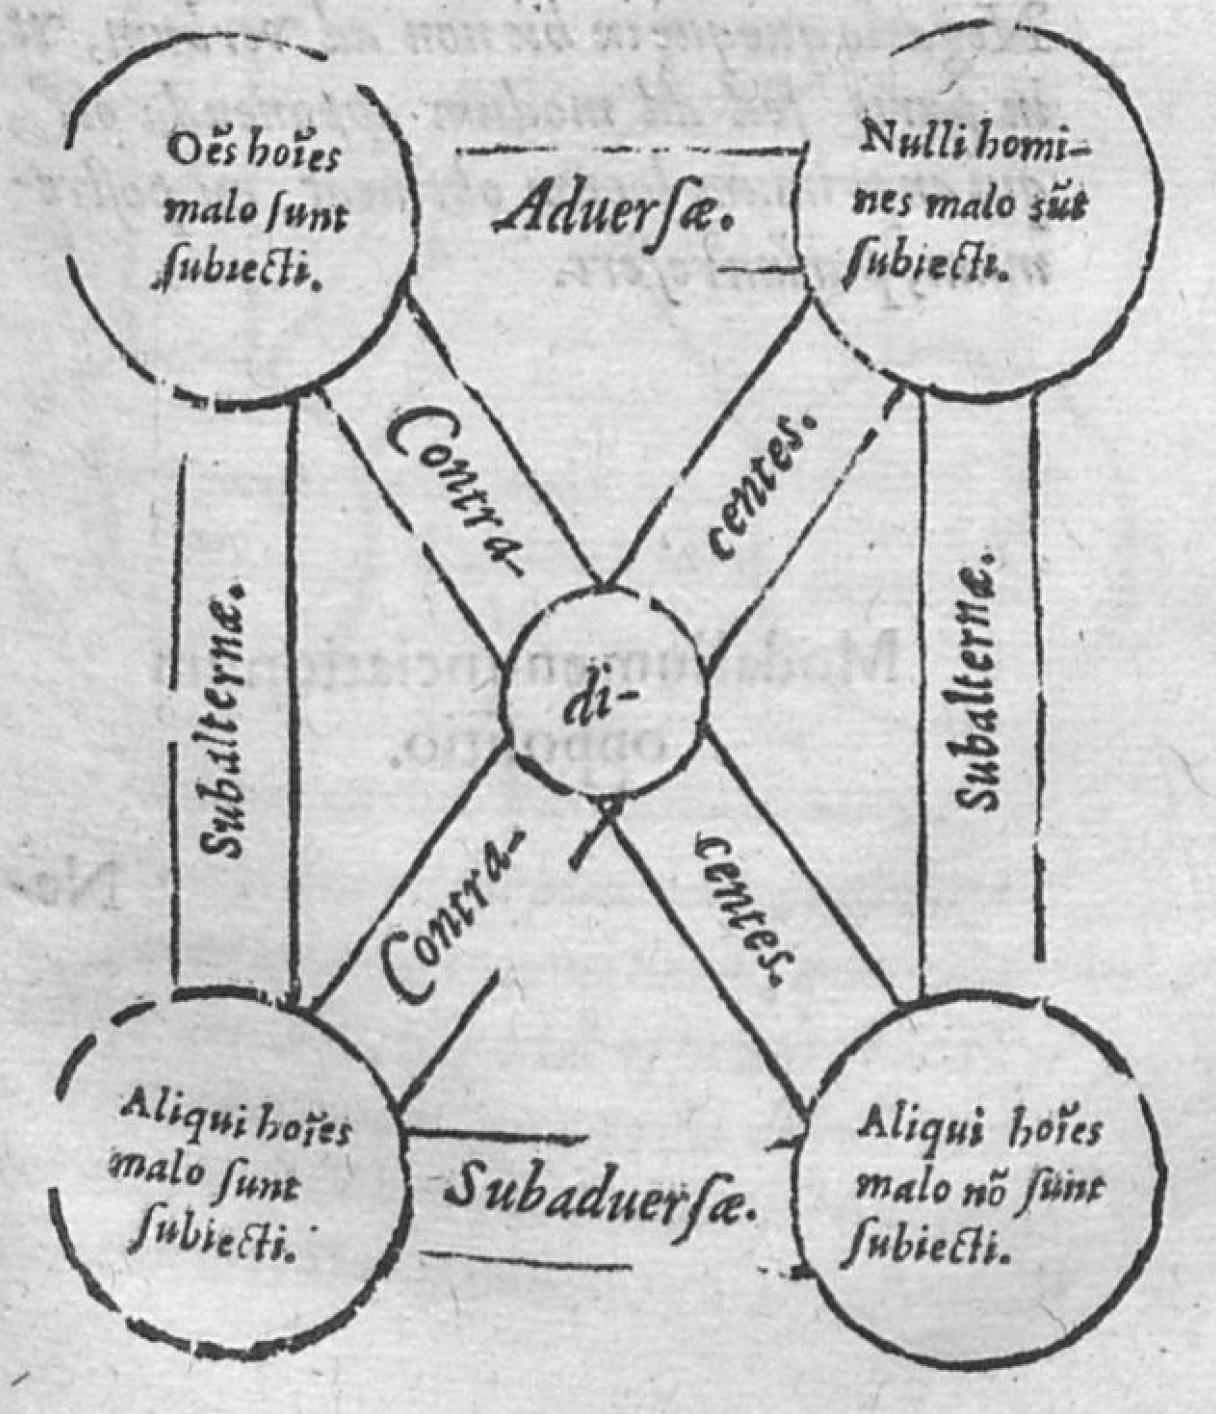 Oẽs hoĩes
malo ſunt
ſubiecti.
Aduerſæ.
Nulli homi-
nes malo sũt
ſubiecti.
Contra-
centes.
Subalternæ.
di-
Subalternæ.
Contra-
centes.
Aliqui hoĩes
malo ſunt
ſubiecti.
Subaduerſæ.
Aliqui hoĩes
malo nõ ſunt
ſubiecti.